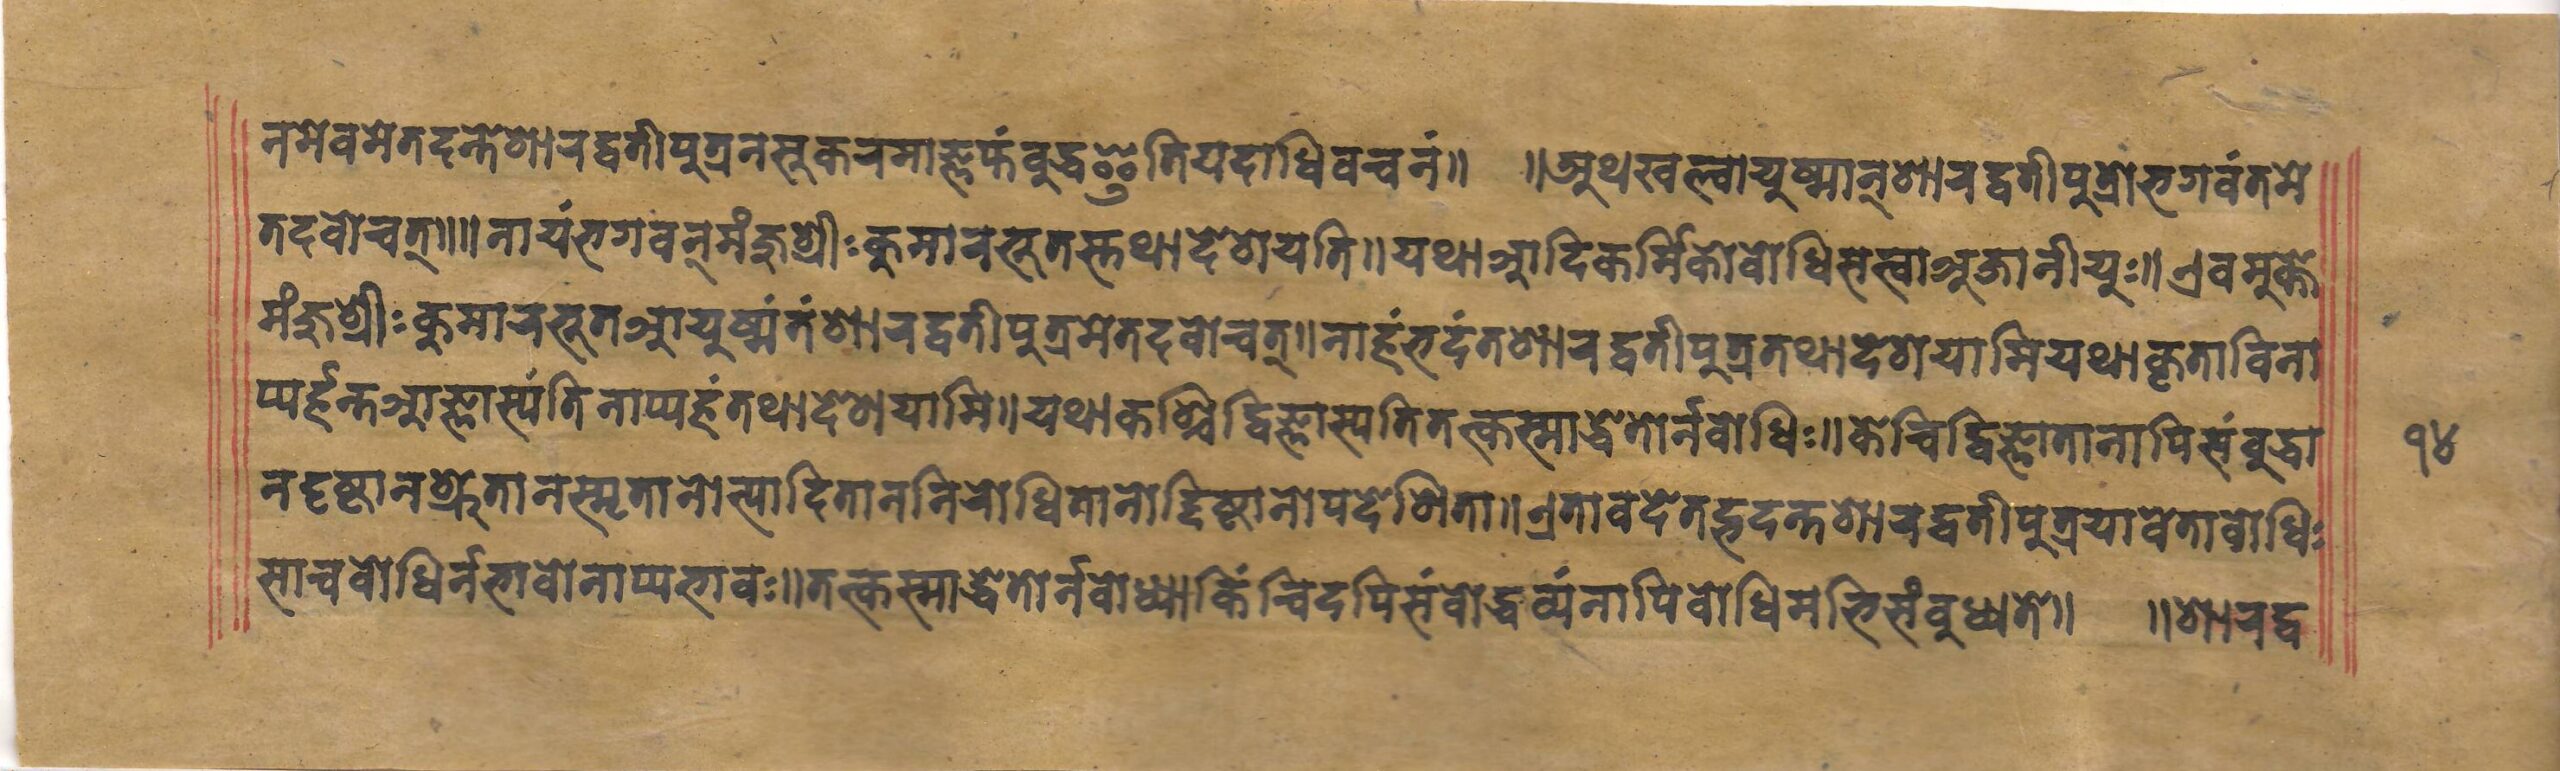 नमेवमेतदन्तेशारद्वतीपुत्रनसूकरमाज्ञप्तंबुद्धइतियदाधिवचनं॥ ॥अथखल्वायुष्मान्शारद्वतीपुत्रोभगवंतमे
तदवोचत्॥॥नायंभगवन्मंजुश्रीःकुमारभूतस्तथादेशयति॥यथाआदिकर्मिकोबोधिसत्त्वाअजानीयुः॥एवमुक्ते
मंजुश्रीःकुमारभूतआयुष्मंतंशारद्वतीपुत्रमेतदवोचत्॥नाहंभदंतशारद्वतीपुत्रतथादेशयामियथाकृताविना
प्यर्हन्तआज्ञास्यंतिनाप्यहंतथादेशयामि॥यथाकश्चिद्विज्ञास्यतितत्कस्माद्धेतोर्नबोधिः॥केचिद्विज्ञातानापिसंबुद्धा
नदृष्टानश्रुतानस्मृतानोत्पादिताननिरोधितानोद्दिष्टानोपदेशिता॥एतावदेतद्भदन्तशारद्वतीपुत्रयावेताबोधिः
साचबोधिर्नभावोनाप्यभावः॥तत्कस्माद्धेतोर्नबोध्याकिंचिदपिसंबोद्धव्यंनापिबोधिमभिसंबुध्यते॥ ॥शारद्व
१४